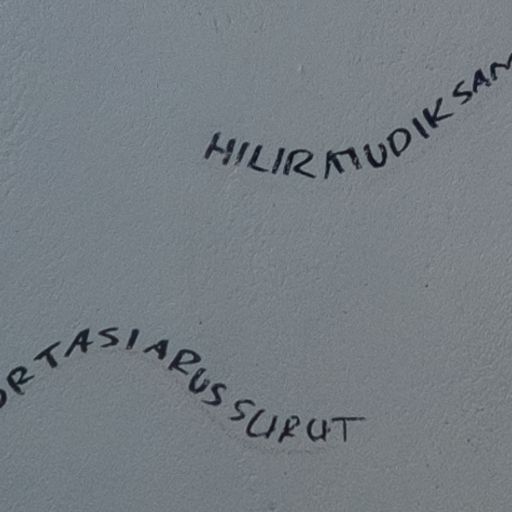 HILIR MUDIK SAM
ORTASI ARUS SURUT